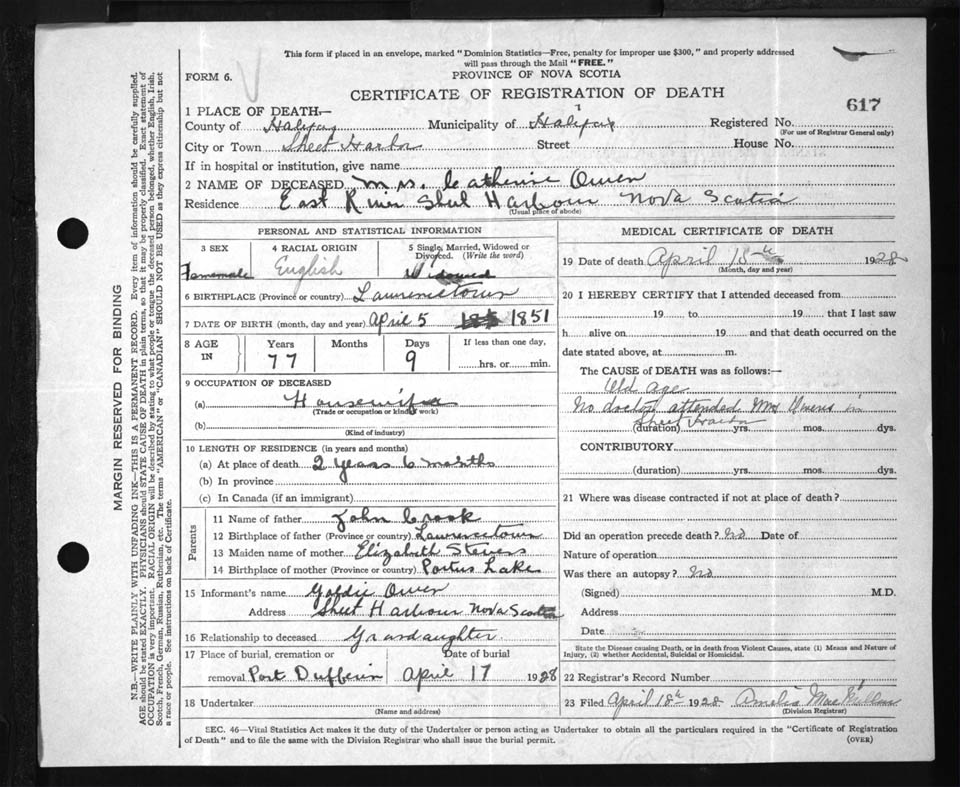 This form if placed in an envelope, marked "Dominion Statistics—Free, penalty for improper use $300," and properly addressed
will pass through the Mail "FREE."
FORM 6.
PROVINCE OF NOVA SCOTIA
CERTIFICATE OF REGISTRATION OF DEATH
617
1 PLACE OF DEATH—
County of Halifax Municipality of Halifax Registered No.
(For use of Registrar General only)
City or Town Sheet Harbor Street House No.
If in hospital or institution, give name
2 NAME OF DECEASED Mrs. Catherine Owen
Residence East River Sheet Harbour Nova Scotia
(Usual place of abode)
PERSONAL AND STATISTICAL INFORMATION
3 SEX
Famemale
4 RACIAL ORIGIN
English
5 Single, Married, Widowed or
Divorced. (Write the word)
Widowed
6 BIRTHPLACE (Province or country) Lawrencetown
7 DATE OF BIRTH (month, day and year) April 5 1851
8 AGE
IN
Years
77
Months
Days
9
If less than one day,
hrs. or min.
9 OCCUPATION OF DECEASED
(a) Housewife
(Trade or occupation or kind of work)
(b)
(Kind of industry)
10 LENGTH OF RESIDENCE (in years and months)
(a) At place of death 2 years 6 months
(b) In province
(c) In Canada (if an immigrant)
Parents
11 Name of father John Crook
12 Birthplace of father (Province or country) Lawrencetown
13 Maiden name of mother Elizabeth Stevens
14 Birthplace of mother (Province or country) Portus Lake
15 Informant's name Goldie Owen
Address Sheet Harbour Nova Scotia
16 Relationship to deceased Grandaughter
17 Place of burial, cremation or Date of burial
removal Port Dufferin April 17 1928
18 Undertaker
(Name and address)
MEDICAL CERTIFICATE OF DEATH
19 Date of death April 15th 1928
(Month, day and year)
20 I HEREBY CERTIFY that I attended deceased from
19 to 19 that I last saw
h alive on 19 and that death occurred on the
date stated above, at m.
The CAUSE OF DEATH was as follows:—
Old Age
No doctor attended Mrs Owens in
Sheet Harbor
(duration) yrs. mos. dys.
CONTRIBUTORY.
(duration) yrs. mos. dys.
21 Where was disease contracted if not at place of death?
Did an operation precede death? No Date of
Nature of operation
Was there an autopsy? No
(Signed) M.D.
Address
Date
State the Disease causing Death, or in death from Violent Causes, state (1) Means and Nature of
Injury, (2) whether Accidental, Suicidal or Homicidal.
22 Registered Record Number
23 Filed April 18th 1928 Amelia MacMillan
(Division Registrar)
SEC. 46—Vital Statistics Act makes it the duty of the Undertaker or person acting as Undertaker to obtain all the particulars required in the "Certificate of Registration
of Death" and to file the same with the Division Registrar who shall issue the burial permit.
(OVER)
MARGIN RESERVED FOR BINDING
N.B.—WRITE PLAINLY WITH UNFADING INK—THIS IS A PERMANENT RECORD. Every item of information should be carefully supplied.
AGE should be stated EXACTLY. PHYSICIANS should STATE CAUSE OF DEATH in plain terms, so that it may be properly classified. Exact statement of
OCCUPATION is very important. RACIAL ORIGIN will be described by stating to what people or tongue the deceased person belonged, whether English, Irish,
Scotch, French, German, Russian, Ruthenian, etc. The terms "AMERICAN" or "CANADIAN" SHOULD NOT BE USED as they express citizenship but not
a race or people. See instructions on back of Certificate.